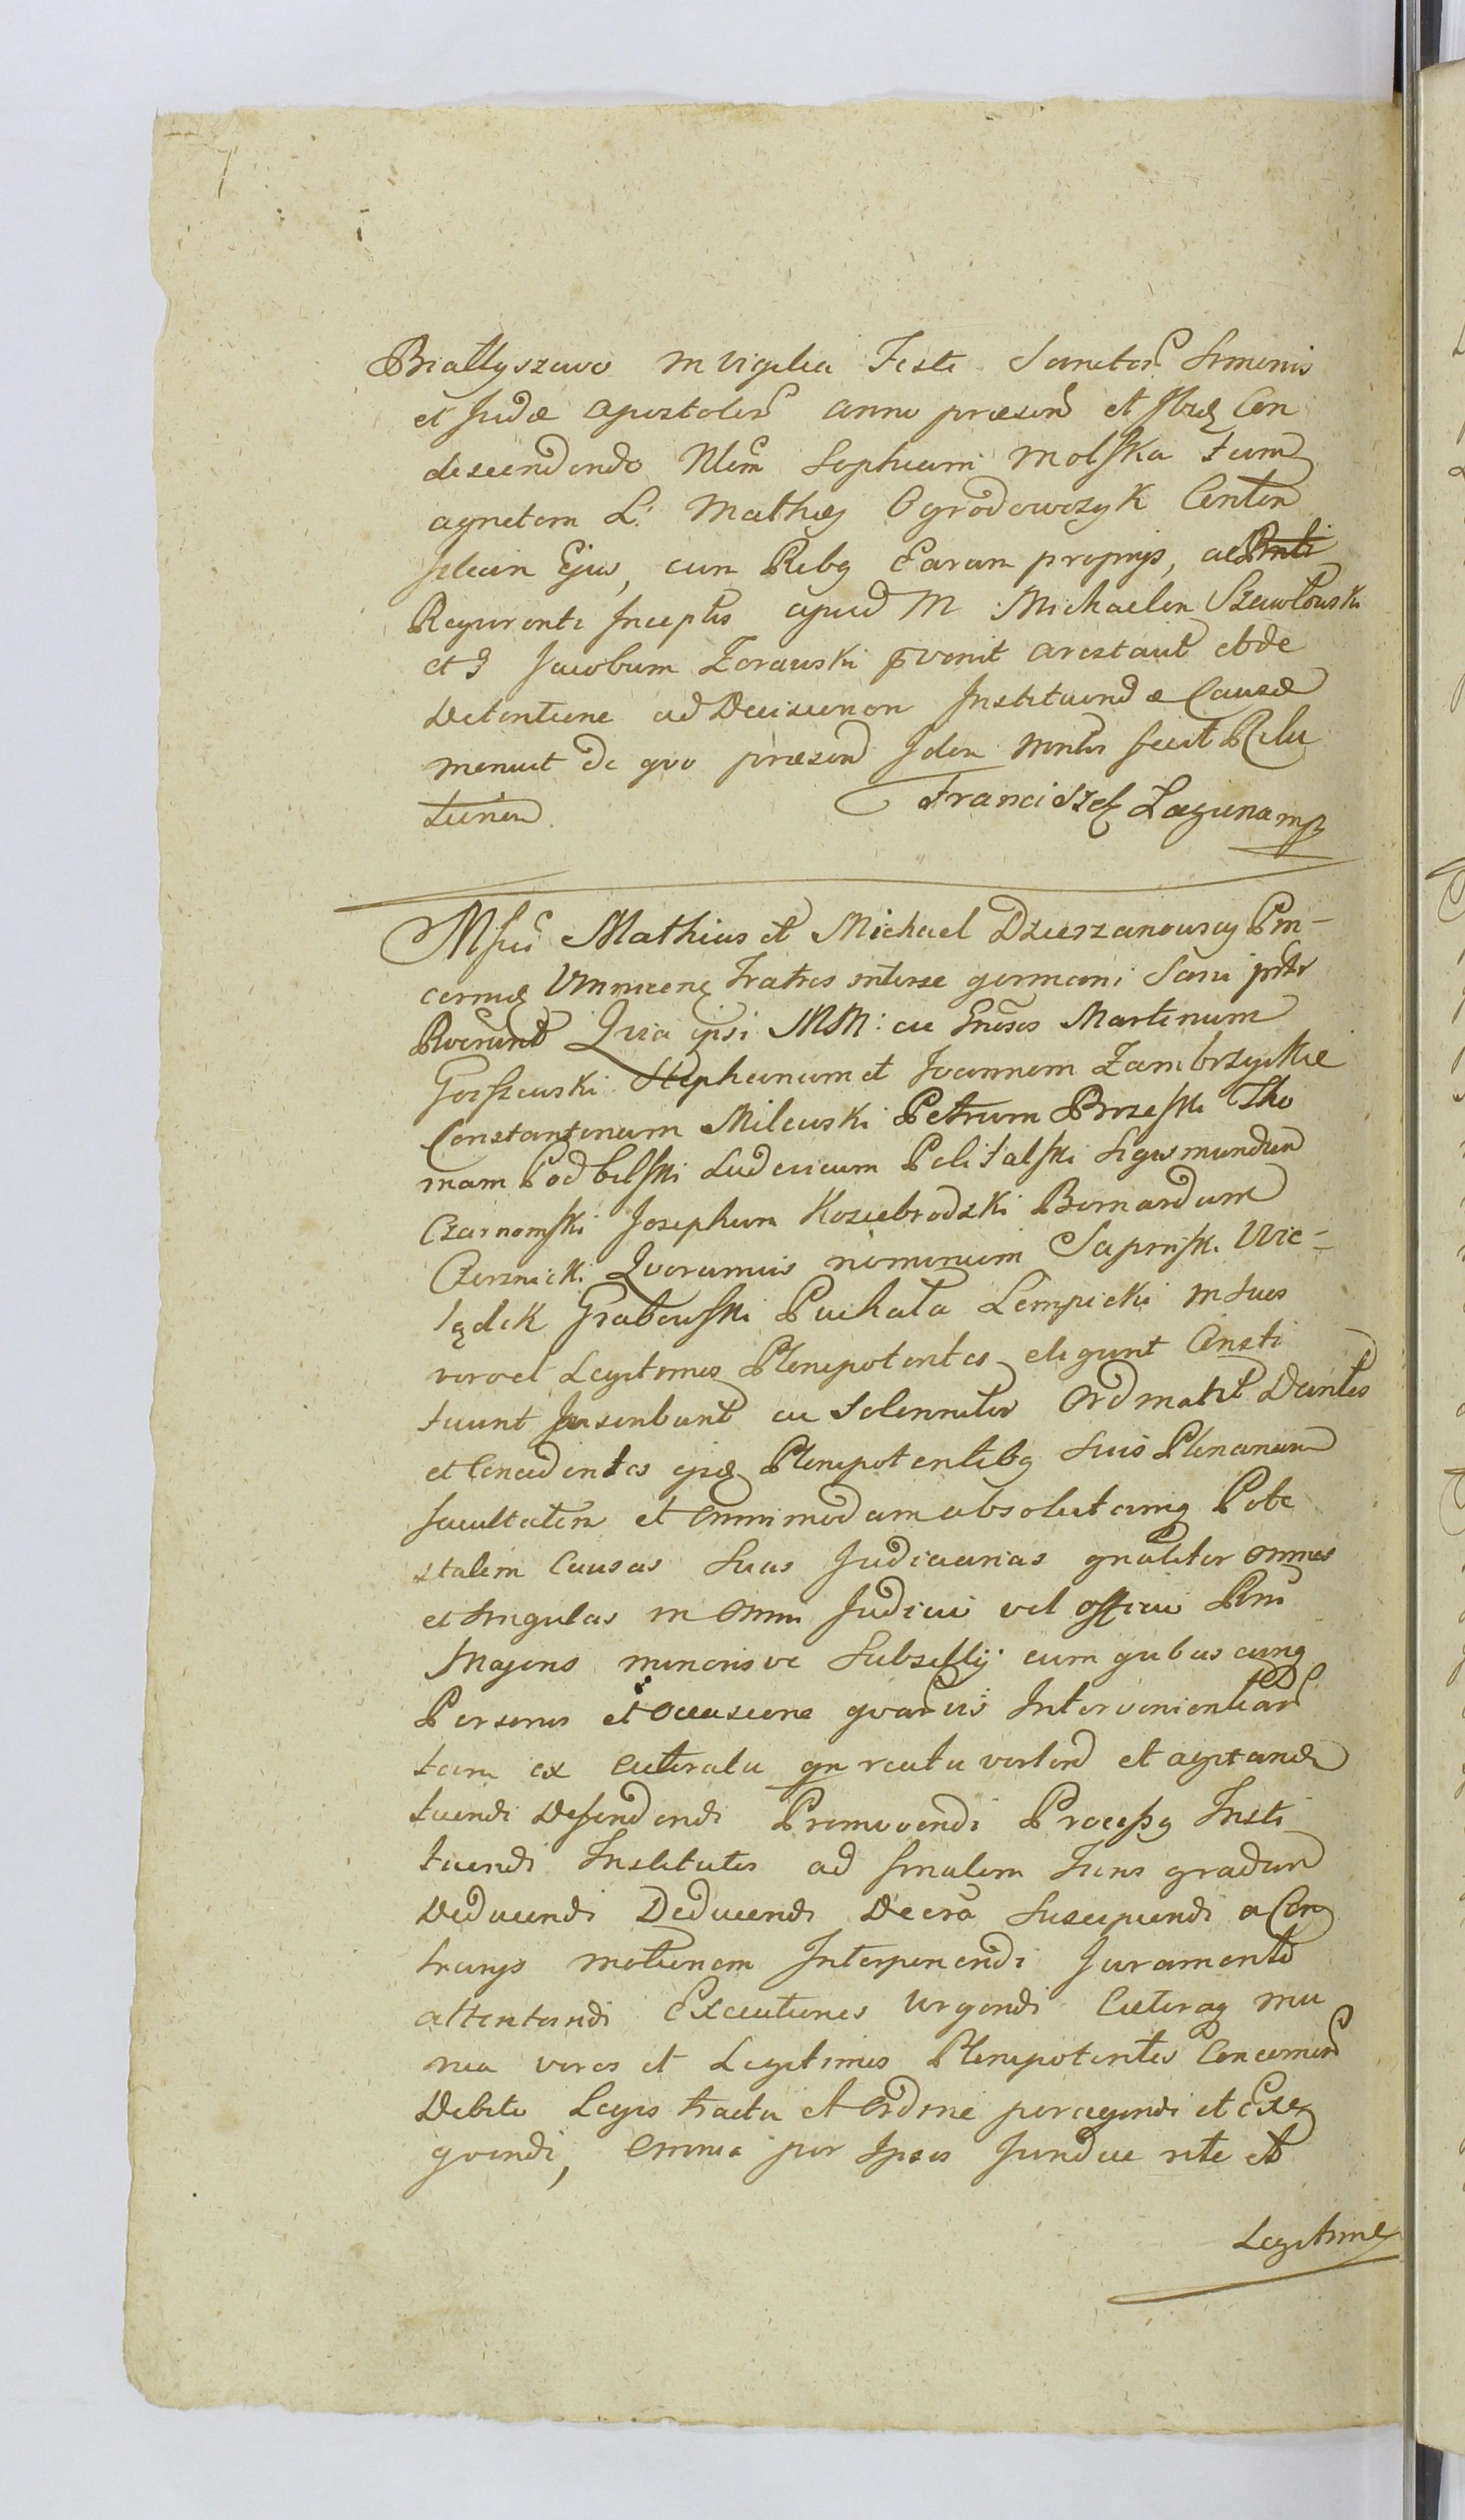 Białłyszewo in vigilia Festi Sanctor Simonis
et Judæ apostolor anno præsen et Ibidę Con
descendendo Nlem Sophiam Molska tum
agnetem L: Mathię Ogrodowczyk Conten
filiam Ejus, cum Rebq Earum proprijs, ac Pnti
Reqvirenti Inceptis apud M Michaelem Szawłowski
et G Jacobum Zorawski pvenit arestavit et de
detentione ad Decisionem Instituendæ Causæ
monuit de qvo præsen Idem Mintr fecit Rela
tionem Franciszek Łaguna mp
Mfici Mathias et Michael Dzierzanowscy Pin-
cernię fratres interse germani Sani pntr
Rverunt Qvia ipsi MM: ac Gnosos Martinum
Gorszewski Stephanum et Joannem Zambrzyckie
Constantinum Milewski Petrum Brzeski Tho
mam Podbilski Ludovicum Politalski Sigismundum
Czarnomski Josephum Kosiebrodzki Bernardum
Czerznicki Qvorumvis nominum Saprisk. Wie-
lądek Grabowski Puchała Lempicki in suos
veros et Legitimos Plenipotentes eligunt Consti
tuunt Inscribunt ac Solenniter Ordinant Dantes
et Concedentes ipsę Plenipotentibq Suis Plenariam
facultatem et omnimodam absolutamq Pote
statem Causas Suas Judiciarias gnaliter omnes
et singulas in omni Judicio vel officio Rni
Majoris minorisve Subsellij cum qvibuscunq
Personis et occasione qvarvis Intervenientiar
tam ex actoratu qn reatu verten et agitand
tuendi Defendendi Promovendi Processq Insti
tuendi Institutos ad finalem Juris gradum
Deducendi Deducendi Decra Suscipiendi a Con
trarijs motionem Interponendi Juramento
attentandi Executiones Urgendi Cæteraq mu
nia veros et Legitimos Plenipotentes Concernen
Debito Legis tractu et ordine peragendi et Exe
qvendi, omnia per Ipsos Jundice rite et
Legitime